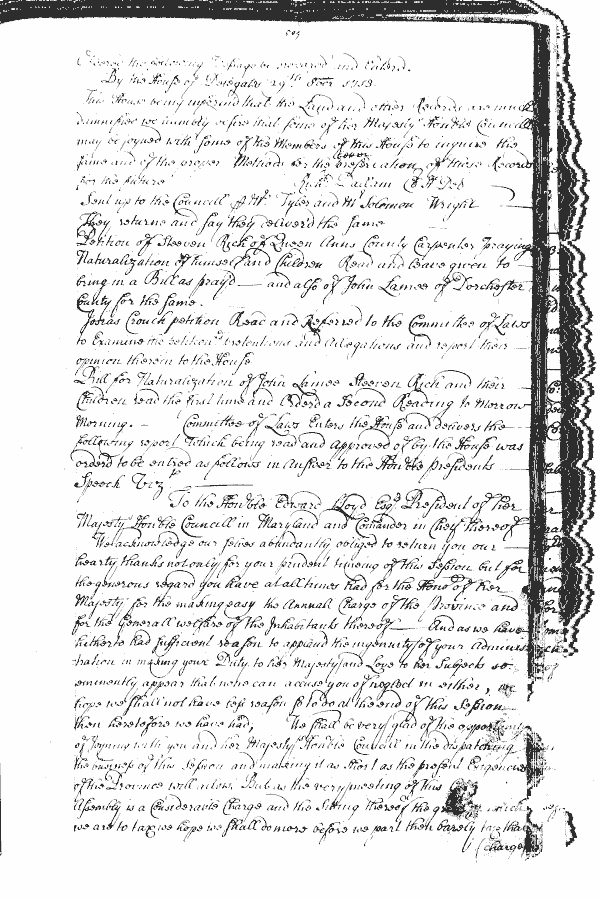 503
Ordered the following Message be prepared and Entered.
By the House of Delegates 29th Octor 1712
This House being informd that the Land and other Records are much
damnified we humbly desire that some of her Majestys Honble Councill
may be joyned with some of the Members of this House to inquire the
same and of the proper Methods for the Preservation of those Records
for the future Richd Dallam Cl H Del
Sent up to the Councill by Mr Tyler and Mr Solomon Wright
They returne and say they deliverd the same
Petition of Steeven Rich of Queen Anns County Carpenter praying
Naturalization of himself and Children Read and leave given to
bring in a Bill as pray'd and also of John Lamee of Dorchester
County for the same.
Josias Crouch petition Read and Referred to the Committee of Laws
to Examine the petitionrs pretentions and Allegations and report their
opinion therein to the House
Bill for Naturalization of John Lamee Steeven Rich and their
Children read the first time and Orderd a Second Reading to Morrow
Morning. Committee of Laws Enters the House and delivers the
following report which being read and approved of by the House was
orderd to be entred as follows in Answer to the Honble Presidents
Speech Vizt
To the Honble Edward Lloyd Esqr President of her
Majestys Honble Councill in Maryland and Comander in Cheif thereof
We acknowledge our selves abundantly obliged to return you our
hearty thanks not only for your prudent timeing of this Session but for
the generous regard you have at all times had for the Honor of her
Majesty for the making easy the Annuall Charge of the Province and
for the Generall welfare of the Inhabitants thereof And as we have
hitherto had sufficient reason to applaud the ingenuity of your Adminis
tration in making your Duty to her Majesty and Love to her Subjects so
eminently appear that none can accuse you of neglect in either, we
hope we shall not have less reason so to do at the end of this Session
then heretofore we have had, We shall be very glad of the opportunity
of Joyning with you and her Majestys Honble Councill in the dispatching
the business of this Session and making it as short as the present Exigencies
of the Province will allow. But as the very meeting of this
Assembly is a Considerable Charge and the Sitting thereof the which
we are to tax we hope we shall do more before we part then barely tax that
Charge